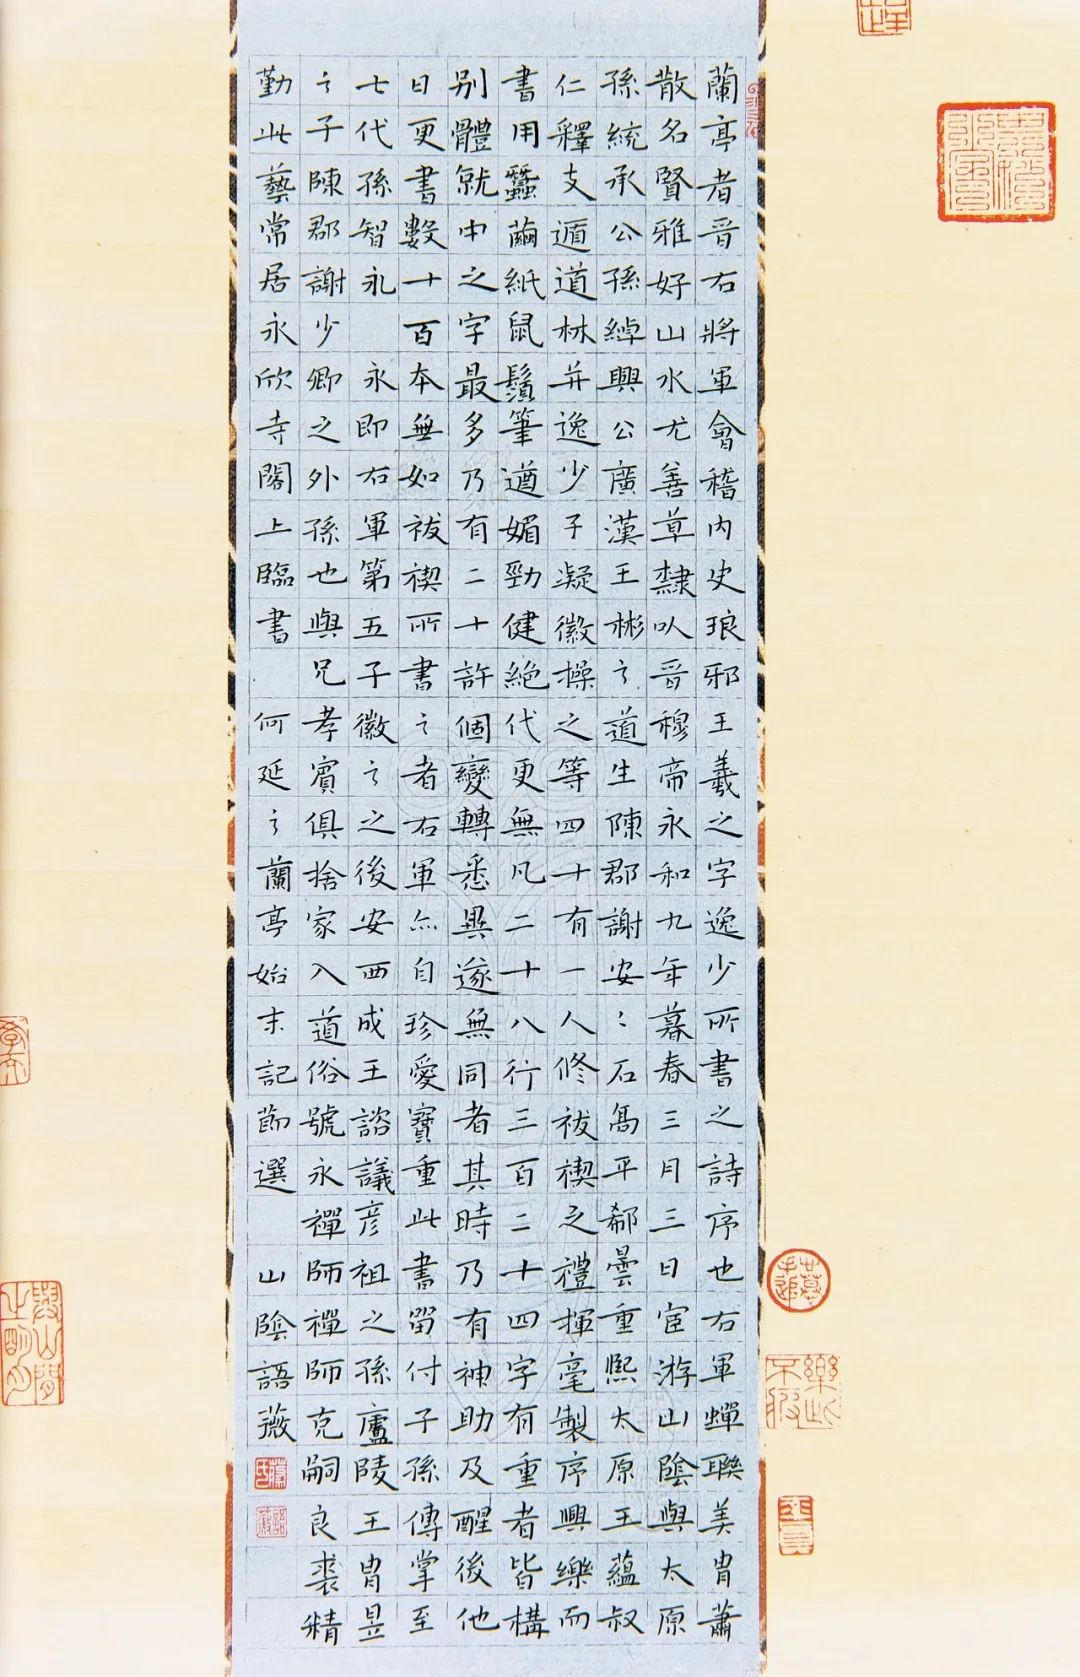 蘭亭者晉右將軍會稽內史琅邪王羲之字逸少所書之詩序也右軍蟬聯美胄蕭
散名賢雅好山水尤善草隸以晉穆帝永和九年暮春三月三日宦游山陰與太原
孫統承公孫綽興公廣漢王彬彡道生陳郡謝安〻石高平郗曇重熙太原王蘊叔
仁釋支遁道林并逸少子凝徽操之等四十有一人修祓禊之禮揮毫製序興樂而
書用蠶繭紙鼠鬚筆遒媚勁健絕代更無凡二十八行三百二十四字有重者皆構
别體就中之字最多乃有二十許個變轉悉異遂無同者其時乃有神助及醒後他
日更書數十百本無如祓禊所書之者右軍亦自珍愛寶重此書留付子孫傳掌至
七代孫智永 永即右軍第五子徽之之後安西成王諮議彦祖之孫廬陵王胄昱
之子陳郡謝少卿之外孫也與兄孝賓俱捨家入道俗號永禪師禪師克嗣良裘精
勤此藝常居永欣寺閣上臨書 何延之蘭亭始末記節選 山陰語薇